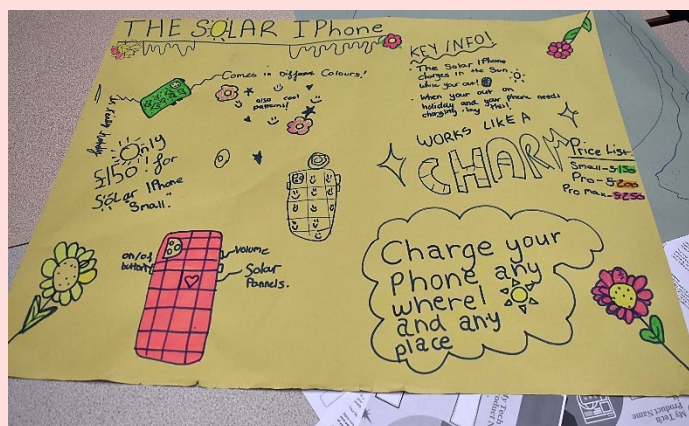 THE SOLAR IPhone
Comes in Different Colours!
also cool
patterns!
Only
£150! for
SOLar IPhone
Small.
KEY INFO!
The Solar IPhone
charges in the Sun
while your out!
When your out on
holiday and your phone needs
charging buy this!
WORKS LIKE A
CHARM
Price List
Small-£150
Pro-£200
Pro max-£250
on/of
button
Volume
Solar
Pannels.
Charge your
Phone any
where!
and any
place
My Tech
Product Name
My Tech